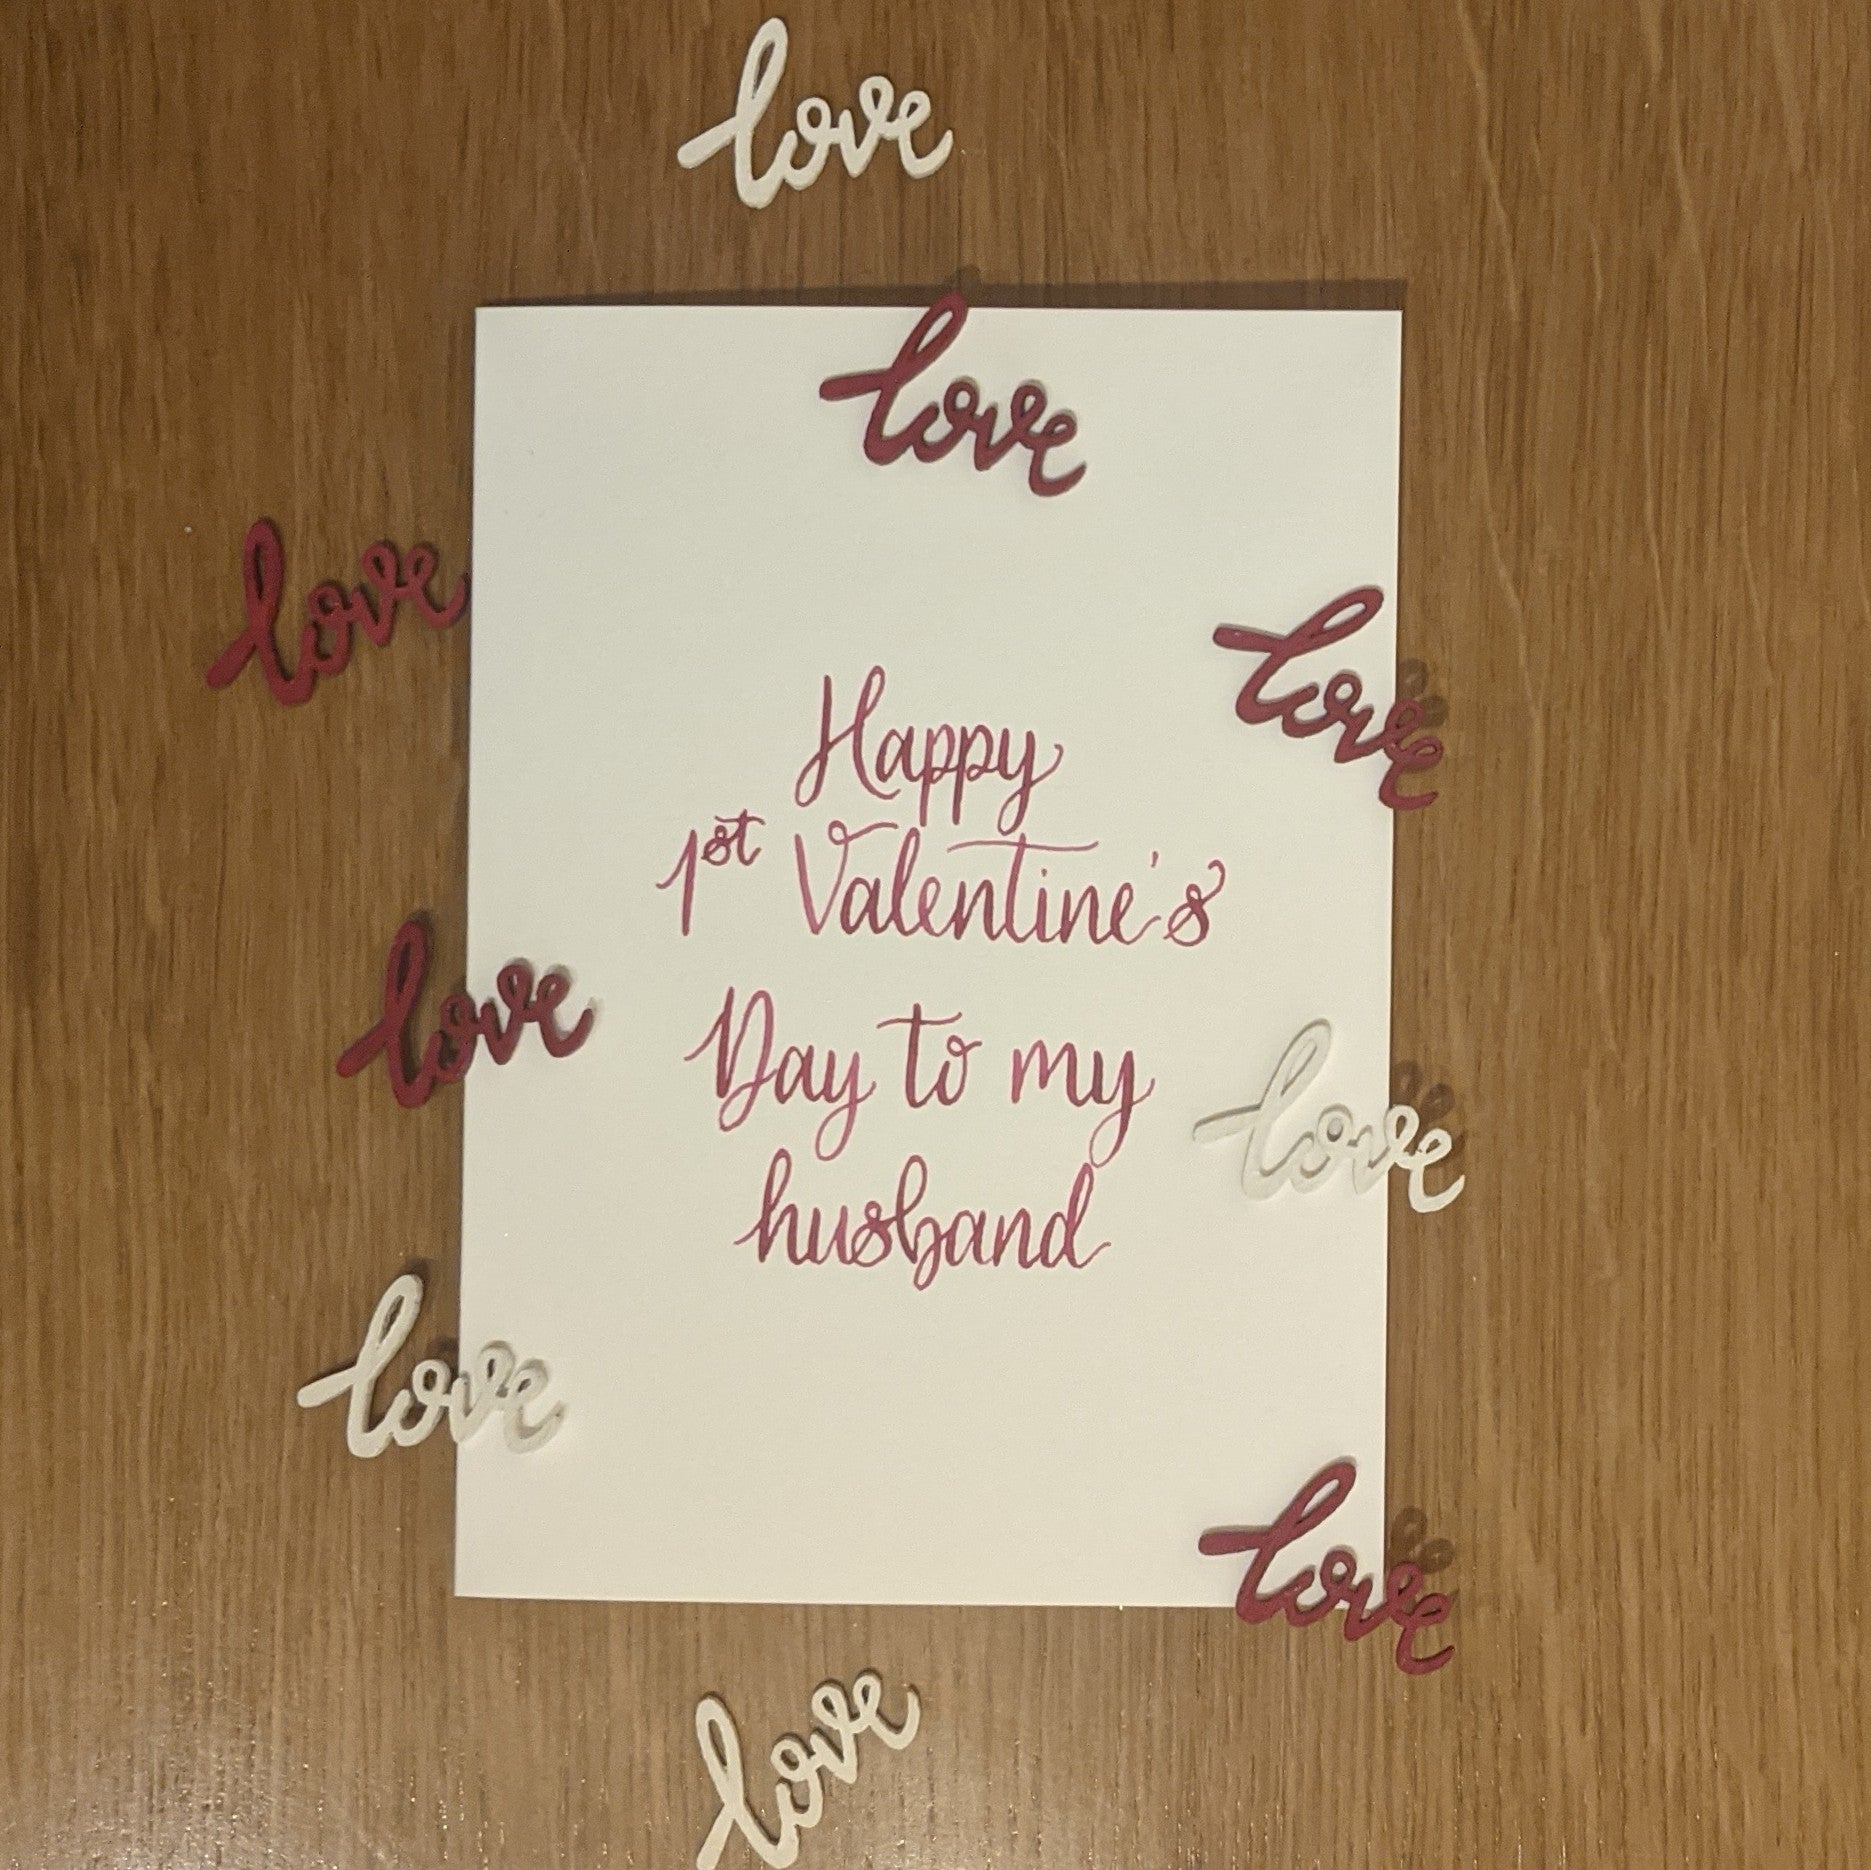 love
love
love
love
Happy
1st Valentine's
Day to my
husband
love
love
love
love
love